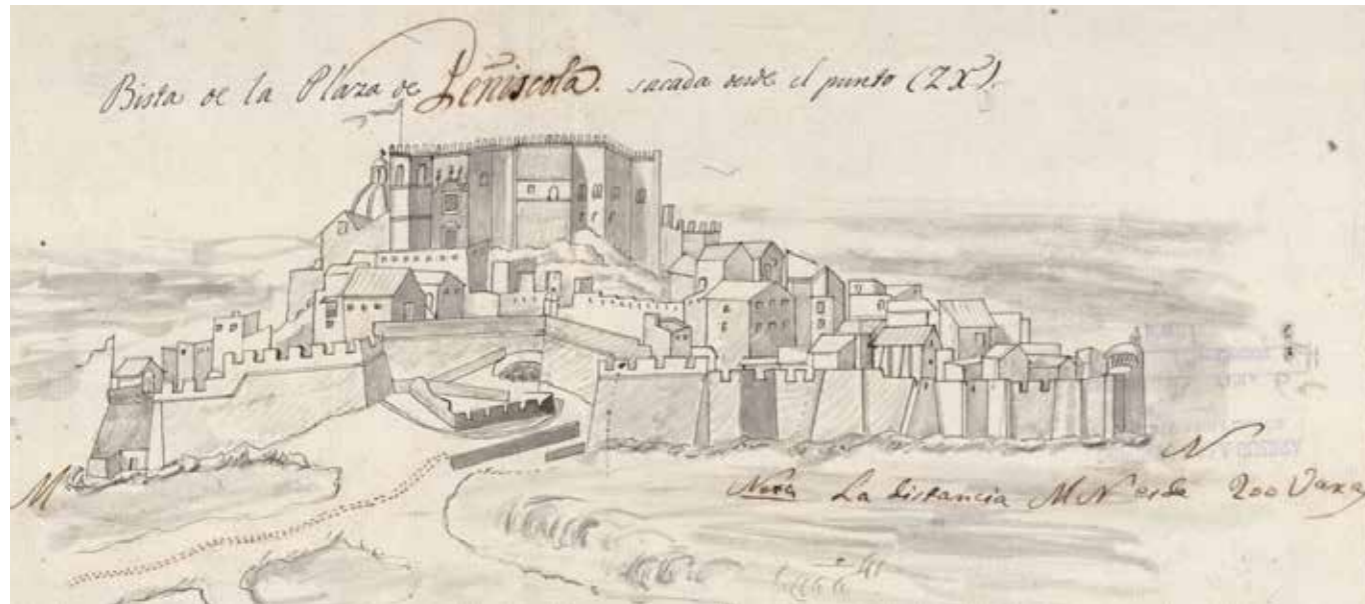 Bista de la Plaza de Peñiscola. sacada desde el punto (ZX).
M
N
Nota La distancia M N es de 200 Varas